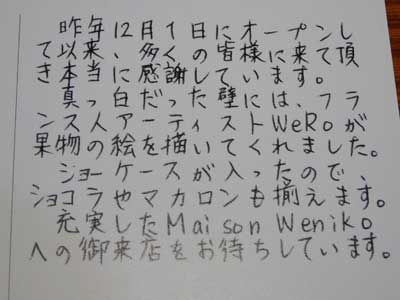 昨年12月1日にオープンし
て以来、多くの皆様に来て頂
き本当に感謝しています。
真っ白だった壁には、フラ
ンス人アーティストWeRoが
果物の絵を描いてくれました。
ショーケースが入ったので、
ショコラやマカロンも揃えます。
充実したMaison Weniko
への御来店をお待ちしています。